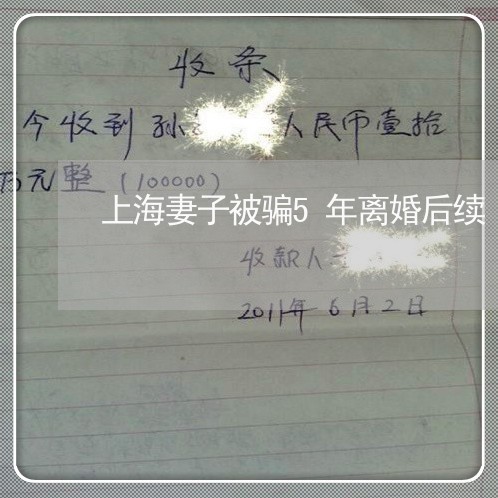 收条
今收到孙 人民币壹拾
万元整(100000)
上海妻子被骗5年离婚后续
收款人
2011年6月2日